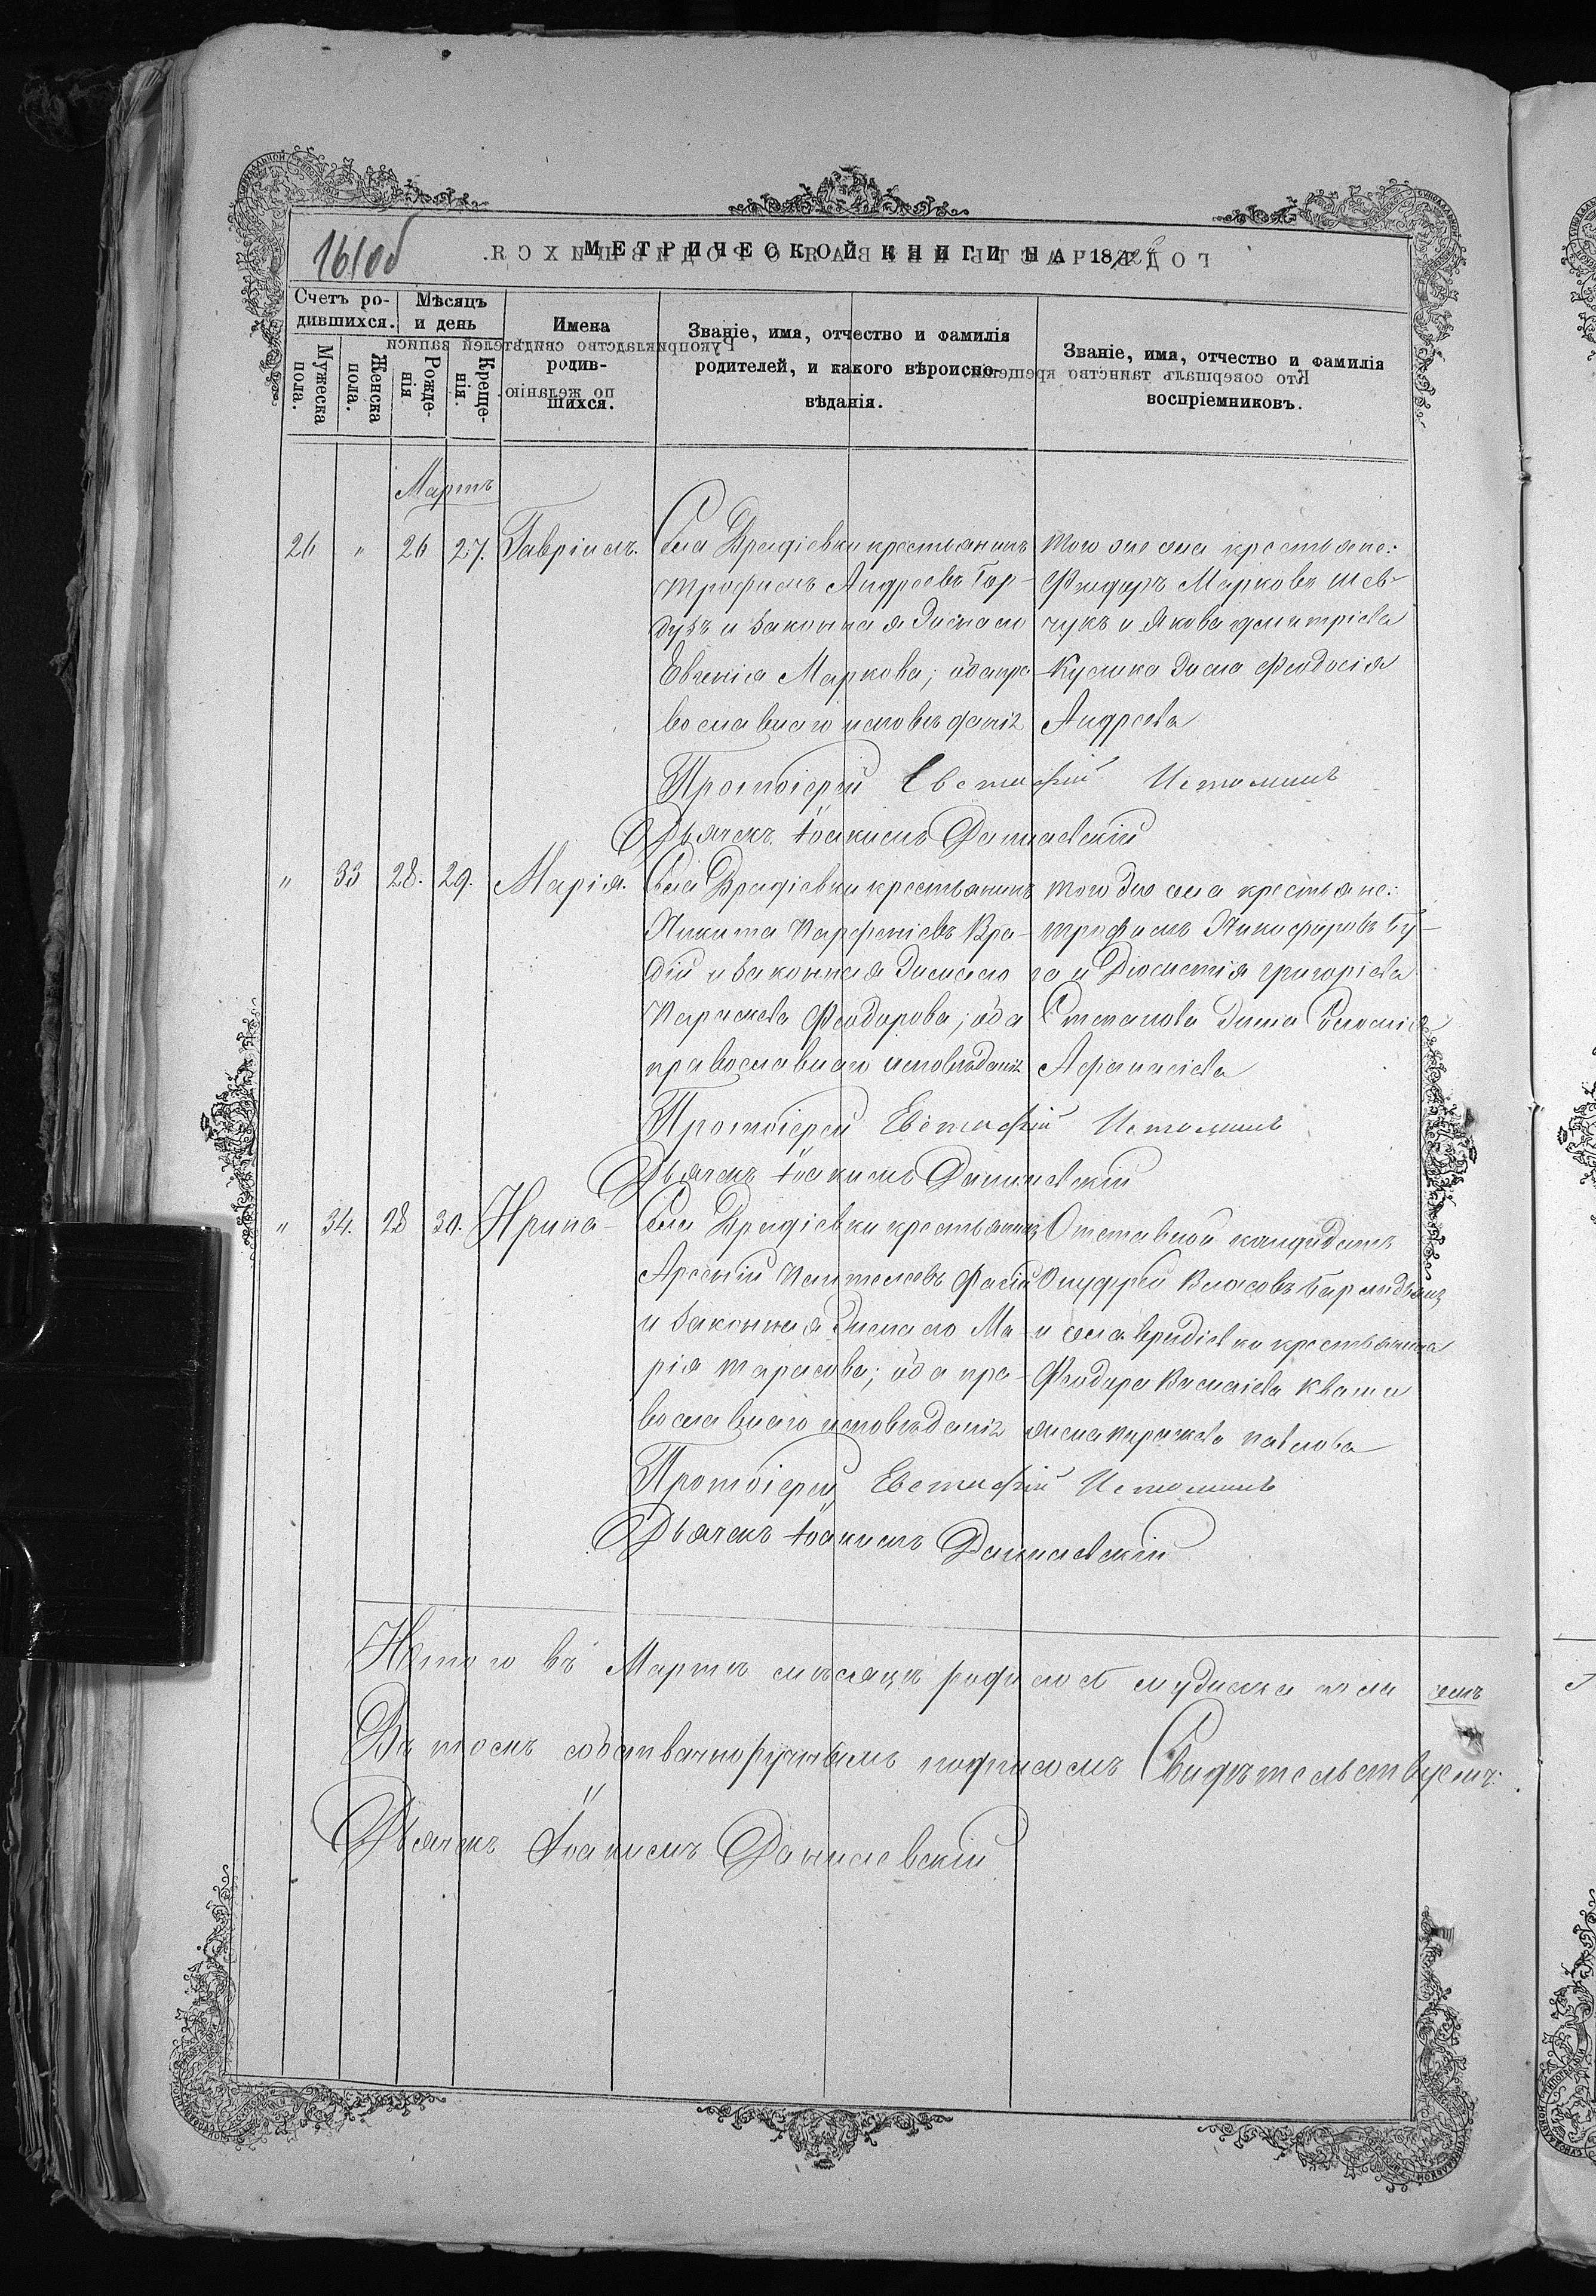 161об
МЕТРИЧЕСКОЙ КНИГИ НА 18
Счетъ ро-
дившихся.
Мѣсяцъ
и день
Мужеска
пола.
Женска
пола.
Рожде-
нія
Креще-
нія.
Имена
родив-
шихся.
Званіе, имя, отчество и фамилія
родителей, и какого вѣроиспо-
вѣданія.
Званіе, имя, отчество и фамилія
воспріемниковъ.
Мартъ
26 " 26 27. Гавріилъ.
Села Врадіевки крестьянинъ
Трофимъ Андреевъ Гор-
и законная жена его
Евгенія Маркова; оба пра-
вославнаго исповѣданія
Того же села крестьяне:
Феодоръ Марковъ Шев-
чукъ и Якова Димитріева
Кулика жена Феодосія
Андреева
Протоіерей Евстафій Истоминъ
Дьячекъ Іоакимъ Данилевскій
" 33 28. 29. Марія.
Села Врадіевки крестьянинъ
Никита Парфеніевъ Вра-
дій и законная жена его
Параскева Феодорова; оба
православнаго исповѣданія
Того же села крестьяне:
Трофимъ Никифоровъ Бу-
га и Діомитія Григоріева
Степанова жена
Афанасіева
Протоіерей Евстафій Истоминъ
Дьячекъ Іоакимъ Данилевскій
" 34. 28 30. Ирина
Села Врадіевки крестьянинъ
Арсеній Пантелеевъ
и законная жена его Ма-
рія Тарасова; оба пра-
вославнаго исповѣданія
Отставной кандидатъ
Онуфрій Власовъ
и села Врадіевки крестьянина
Феодора Василіева Кваши
жена Параскева Павлова
Протоіерей Евстафій Истоминъ
Дьячекъ Іоакимъ Данилевскій
Итого въ Мартѣ мѣсяцѣ родилось мужска пола
Въ томъ собственноручнымъ подписомъ Свидѣтельствуемъ:
Дьячекъ Іоакимъ Данилевскій